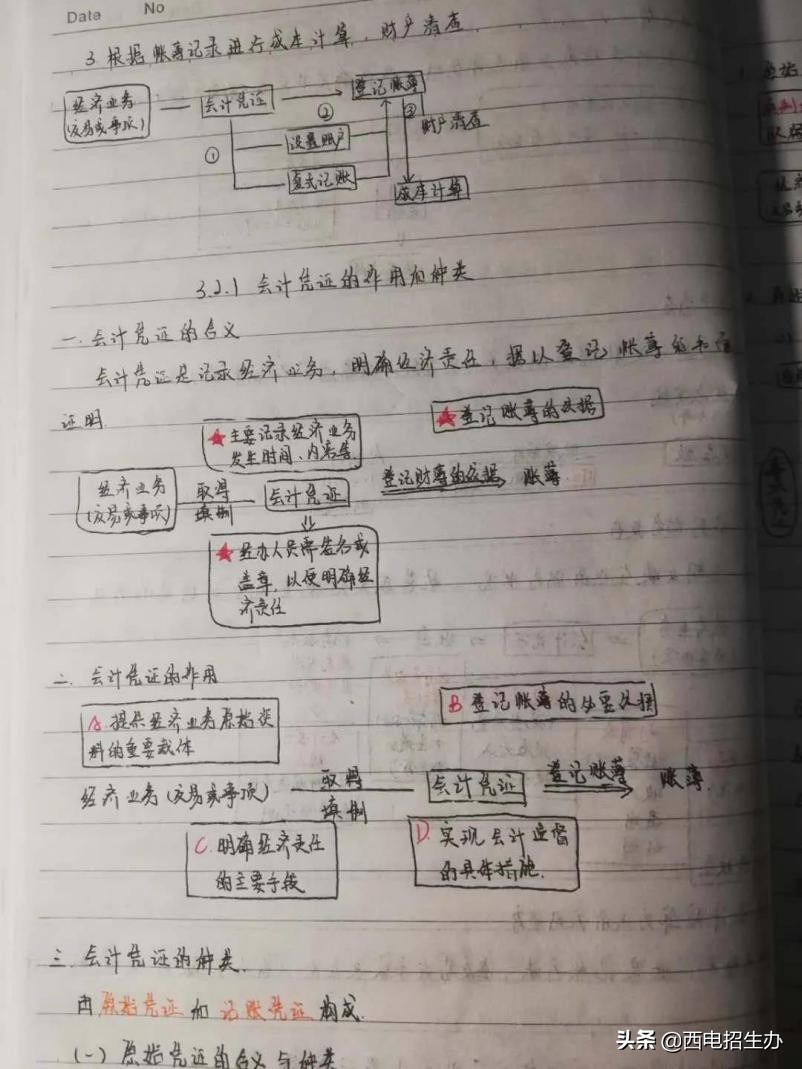 Date No
3. 根据账薄记录进行成本计算，财产清查
经济业务
(交易或事项)
会计凭证
登记账薄
①
②
③
设置账户
复式记账
财产清查
成本计算
3.2.1 会计凭证的作用和种类
一. 会计凭证的含义
会计凭证是记录经济业务，明确经济责任，据以登记帐薄的书面
证明.
★主要记录经济业务
发生时间、内容等.
★登记账薄的依据
经济业务
(交易或事项)
取得
填制
会计凭证
登记财薄的依据
账薄
★经办人员需签名或
盖章，以便明确经
济责任
二. 会计凭证的作用
A. 提供经济业务原始资
料的重要载体
B 登记帐薄的必要依据
经济业务(交易或事项)
取得
填制
会计凭证
登记账薄
账薄
C. 明确经济责任
的主要手段
D. 实现会计监督
的具体措施.
三. 会计凭证的种类.
由原始凭证和记账凭证构成.
(一) 原始凭证的含义与种类
头条 @西电招生办